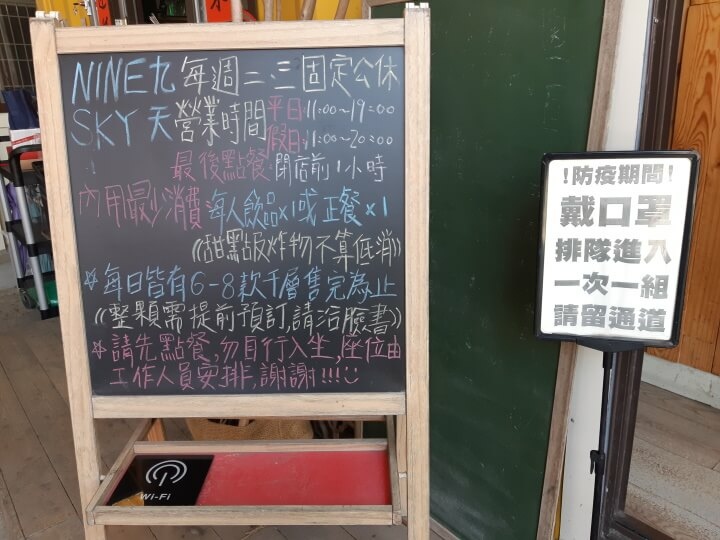 NINE九 每週二.三固定公休
SKY天 營業時間 平日:11:00~19:00
假日:11:00~20:00
最後點餐:閉店前1小時
內用最少消費:每人飲品x1或正餐x1
((甜點/炸物不算低消))
*每日皆有6-8款千層售完為止
((整顆需提前預訂,請洽臉書))
*請先點餐,勿自行入坐,座位由
工作人員安排,謝謝!!!
Wi-Fi
!防疫期間!
戴口罩
排隊進入
一次一組
請留通道